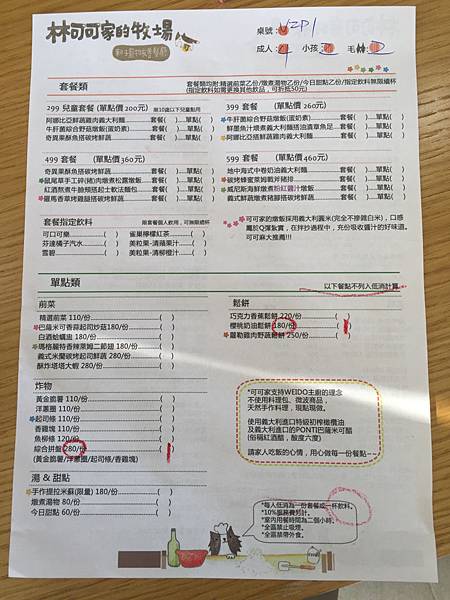 林可可家的牧場
親子寵物友善餐廳
桌號:VZP1
成人: 小孩: 毛小孩:
套餐類
套餐類均附:精選前菜乙份/燉煮湯物乙份/今日甜點乙份/指定飲料無限續杯
(指定飲料如需更換其他飲品,可折抵50元)
299 兒童套餐 (單點價200元) 限10歲以下兒童點用
阿娜比亞鮮蔬雞肉義大利麵 套餐( )...單點( )
牛肝菌綜合野菇燉飯(蛋奶素) 套餐( )...單點( )
奇異果酥魚搭碳烤鮮蔬 套餐( )...單點( )
399 套餐 (單點價 260元)
牛肝菌綜合野菇燉飯(蛋奶素) 套餐( )...單點( )
鮮墨魚汁煨煮義大利麵搭油漬章魚足...套餐( )...單點( )
阿娜比亞搭鮮蔬雞肉義大利麵 套餐( )...單點( )
499 套餐 (單點價360元)
奇異果酥魚搭碳烤鮮蔬 套餐( )...單點( )
鼠尾草手工碎(豬)肉燉煮松露燉飯...套餐( )...單點( )
紅酒熬煮牛臉頰搭起士軟法麵包 套餐( )...單點( )
羅馬香草烤雞腿搭碳烤鮮蔬 套餐( )...單點( )
599 套餐 (單點價460元)
地中海式中卷奶油義大利麵 套餐( )...單點( )
碳烤蜂蜜萊姆戰斧豬排 套餐( )...單點( )
威尼斯海鮮燉煮粉紅醬汁燉飯 套餐( )...單點( )
義式鮮蔬燉煮豬腳搭碳烤鮮蔬 套餐( )...單點( )
套餐指定飲料 限套餐個人飲用,可無限續杯
可口可樂 ( ) 雀巢檸檬紅茶 ( )
芬達橘子汽水 ( ) 美粒果-清蘋果汁 ( )
雪碧 ( ) 美粒果-清柳橙汁 ( )
*可可家的燉飯採用義大利圓米(完全不摻雜白米),口感
屬於Q彈紮實,在拌炒過程中,充份吸收醬汁的好味道。
可可麻大推薦!!!
單點類
以下餐點不列入低消計算
前菜
精選前菜 110/份 ( )
巴薩米可香蒜起司炒菇180/份 ( )
白酒蛤蠣湯 180/份 ( )
瑪格麗特香辣萊姆二節翅 180/份 ( )
義式米蘭碳烤起司鮮蔬 280/份 ( )
酥炸塔塔大蝦 280/份 ( )
鬆餅
巧克力香蕉鬆餅 220/份 ( )
櫻桃奶油鬆餅 180/份 ( )
蘿勒雞肉野菇鬆餅 250/份 ( )
炸物
黃金脆薯 110/份 ( )
洋蔥圈 110/份 ( )
起司條 110/份 ( )
香雞塊 110/份 ( )
魚柳條 120/份 ( )
綜合拼盤 280/份 ( )
(黃金脆薯/洋蔥圈/起司條/香雞塊)
*可可家支持WEIDO主廚的理念
不使用料理包、微波商品,
天然手作料理,現點現做。
使用義大利進口特級初榨橄欖油
及義大利進口的PONTI巴薩米可醋
(俗稱紅酒醋,酸度六度)
請家人吃飯的心情,用心做每一份餐點~~
湯 & 甜點
手作提拉米蘇(限量) 180/份 ( )
燉煮湯物 80/份 ( )
今日甜點 60/份 ( )
*每人低消為一份套餐或一杯飲料。
*10%服務費另計。
*室內用餐時間為二個小時。
*全區禁止吸煙。
*全區禁帶外食。